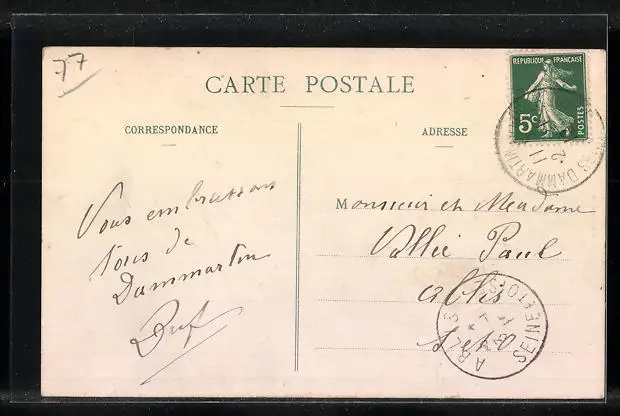 77
CARTE POSTALE
CORRESPONDANCE
ADRESSE
REPUBLIQUE FRANÇAISE
5c
POSTES
DAMMARTIN
Vous embrassons
tous de
Dammartin
Monsieur et Madame
Vallée Paul
Ablis
S et O
ABLIS
SEINE ET OISE